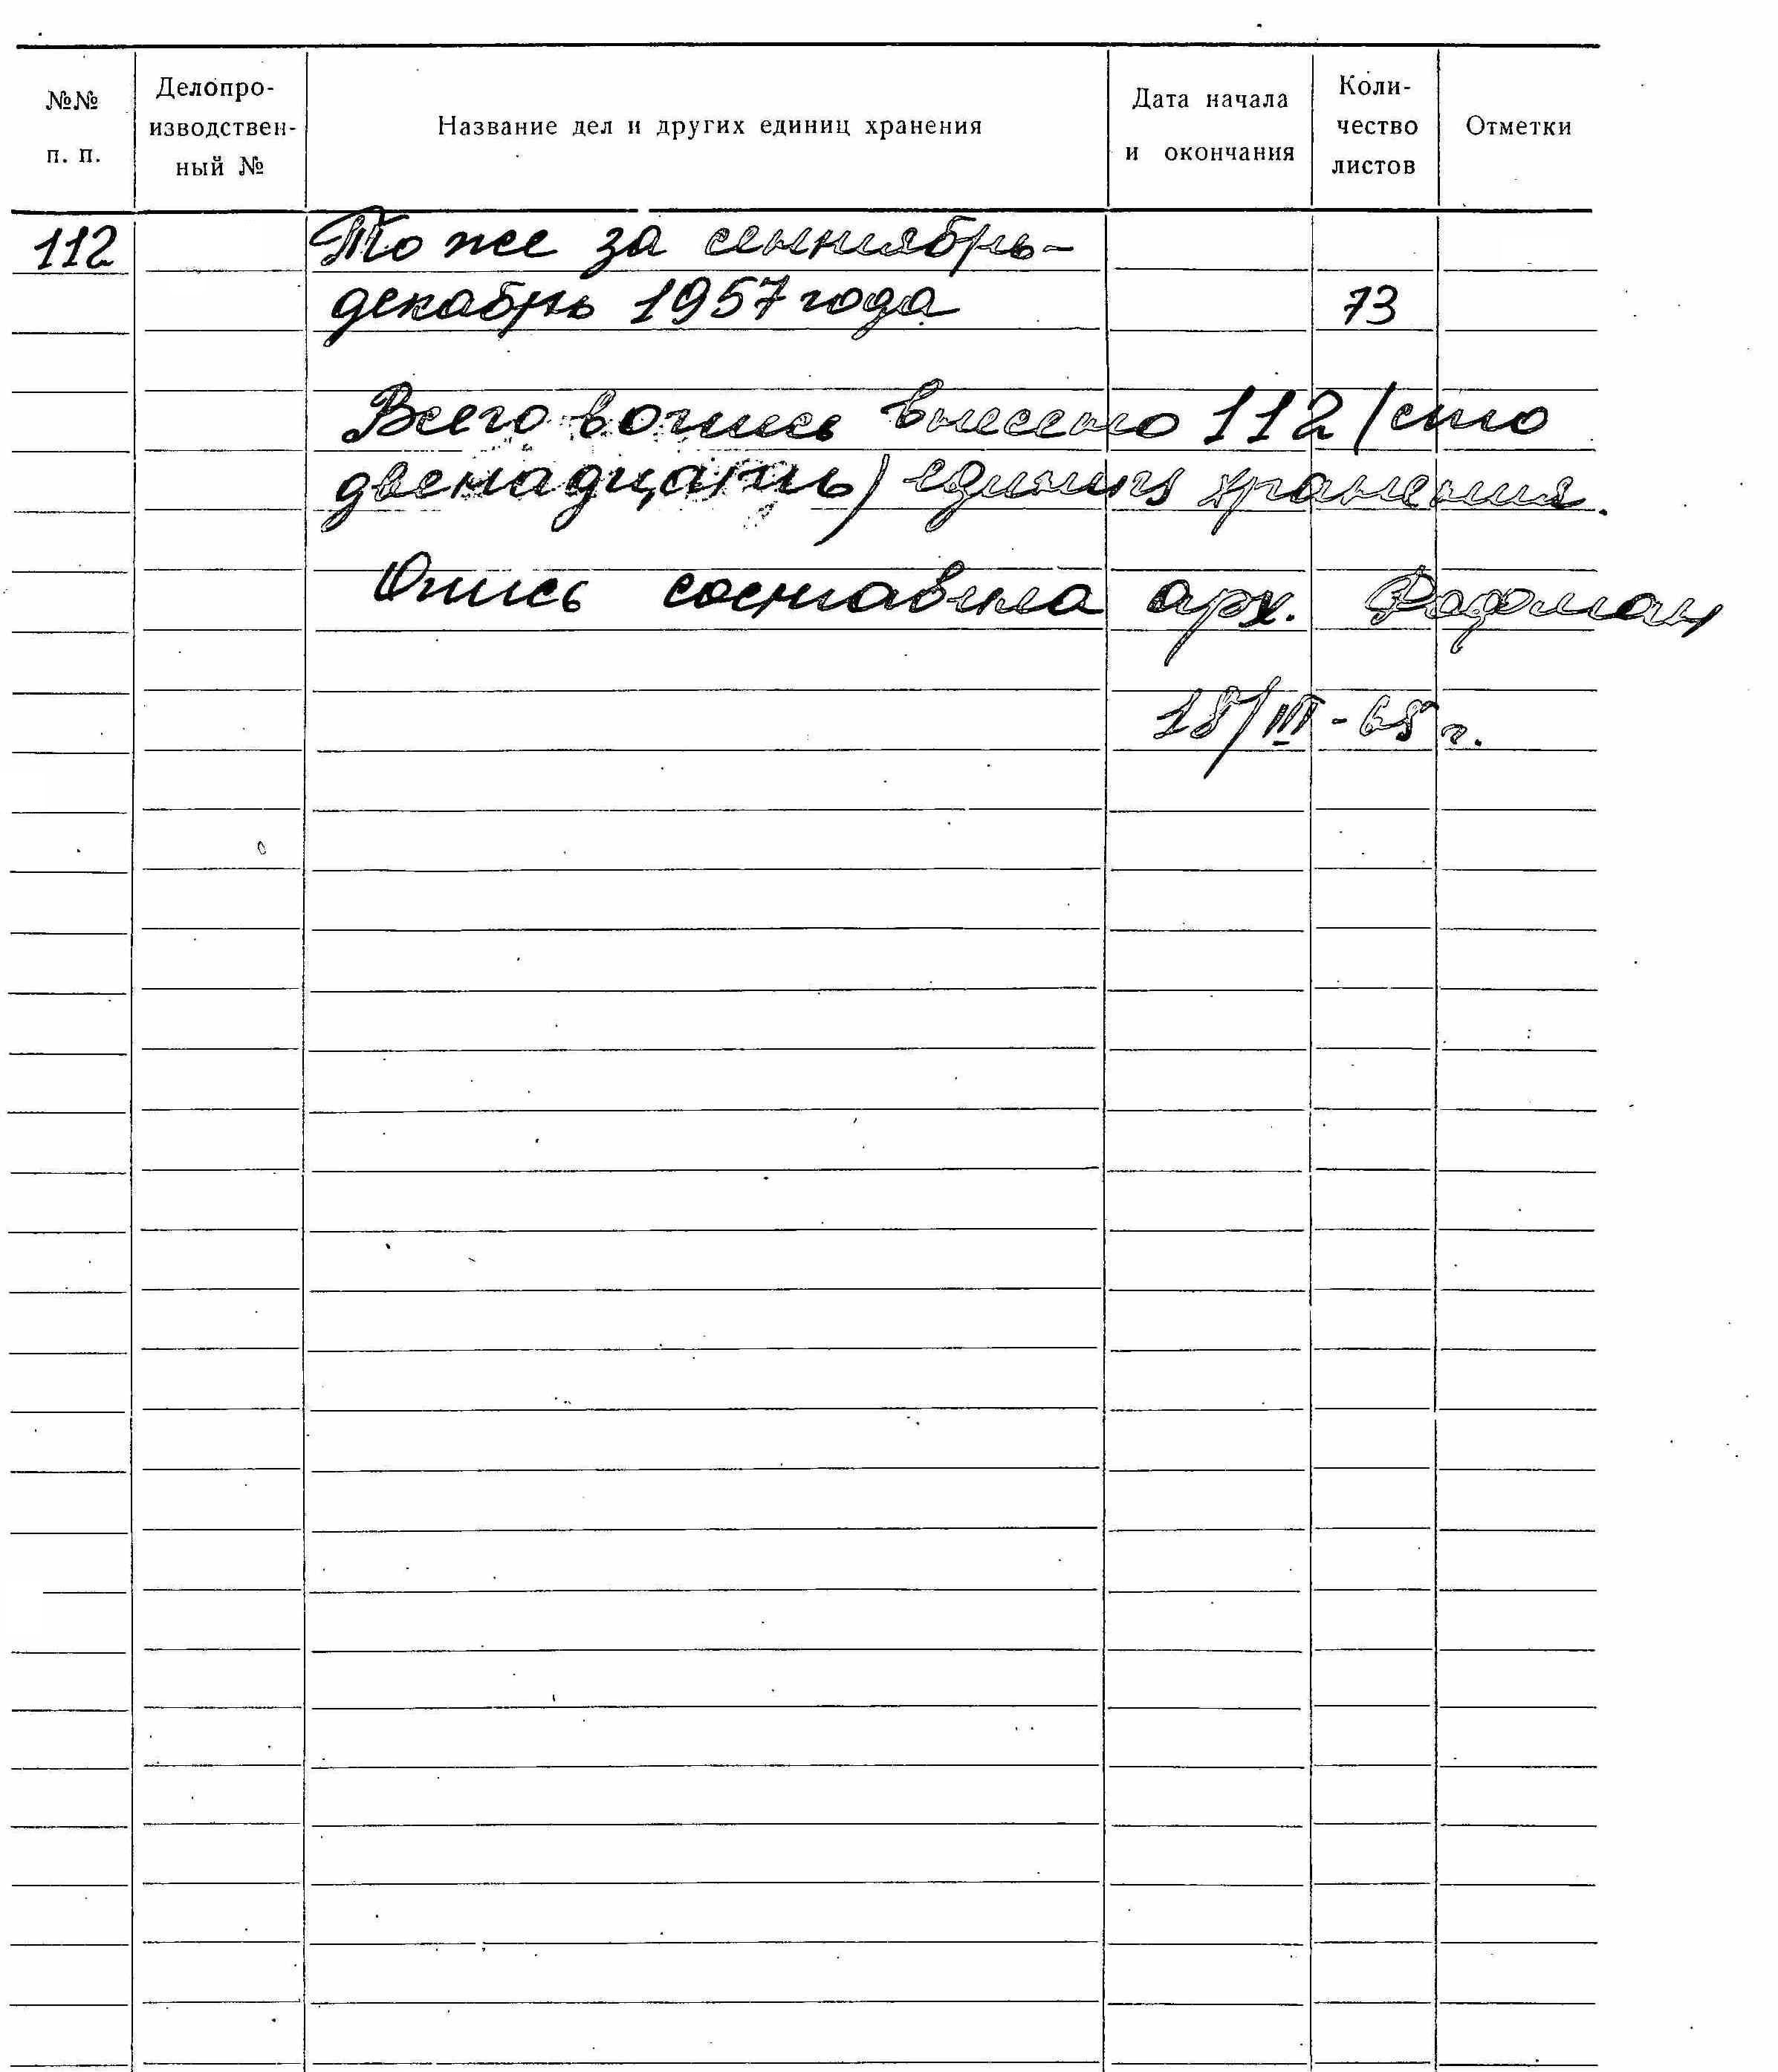 №№ п. п. Делопро-изводствен-ный № Название дел и других единиц хранения Дата начала и окончания Коли-чество листов Отметки
112 То же за сентябрь-
декабрь 1957 года 73
Всего в опись внесено 112 (сто
двенадцать) единиц хранения.
Опись составила арх.
18/III-65 г.